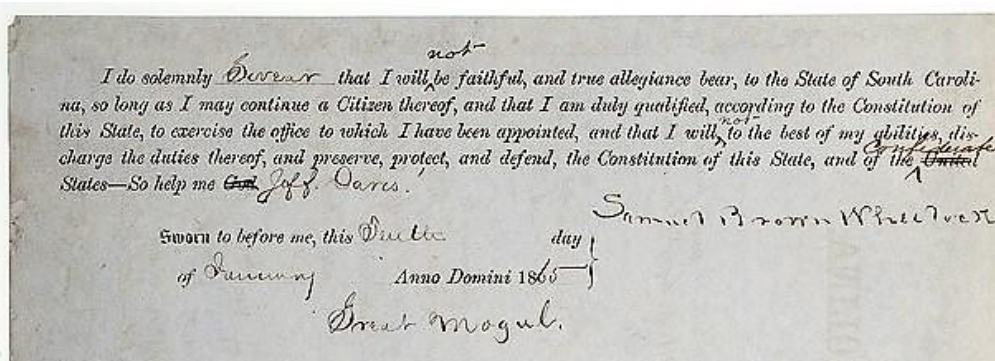 not
I do solemnly Swear that I will be faithful, and true allegiance bear, to the State of South Caroli-
na, so long as I may continue a Citizen thereof, and that I am duly qualified, according to the Constitution of
not
this State, to exercise the office to which I have been appointed, and that I will, to the best of my abilities, dis-
Confederate
charge the duties thereof, and preserve, protect, and defend, the Constitution of this State, and of the United
States—So help me God Jeff. Davis!
Samuel Brown Wheelock
Sworn to before me, this Tenth day
of January Anno Domini 1865
Great Mogul.